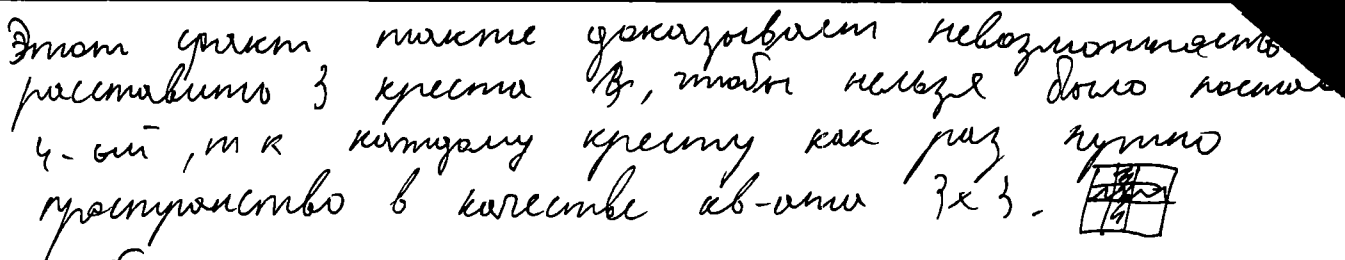 Этот факт также доказывает невозможность
расставить 3 креста, чтобы нельзя было
4-ый, т к каждому кресту как раз нужно
пространство в качестве кв-ата 3х3.